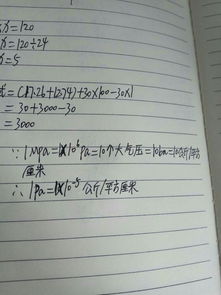 x=120
x=120÷24
x=5
式=(17.26+12.74)+30×100-30×1
=30+3000-30
=3000
∵1Mpa=1×10⁶pa=10个大气压=10ba=10公斤/平方
厘米
∴1pa=1×10⁻⁵公斤/平方厘米